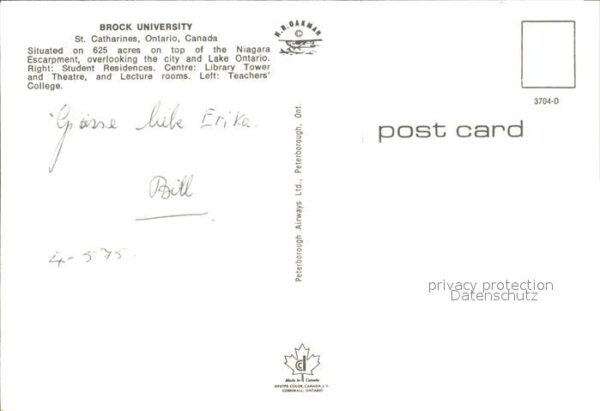 BROCK UNIVERSITY
St. Catharines, Ontario, Canada
Situated on 625 acres on top of the Niagara
Escarpment, overlooking the city and Lake Ontario.
Right: Student Residences. Centre: Library Tower
and Theatre, and Lecture rooms. Left: Teachers'
College.
H.R. OAKMAN
©
3704-D
post card
Grüsse liebe Erika.
Bill
4-575.
Peterborough Airways Ltd., Peterborough, Ont.
privacy protection
Datenschutz
Made in Canada
CORNWALL, ONTARIO